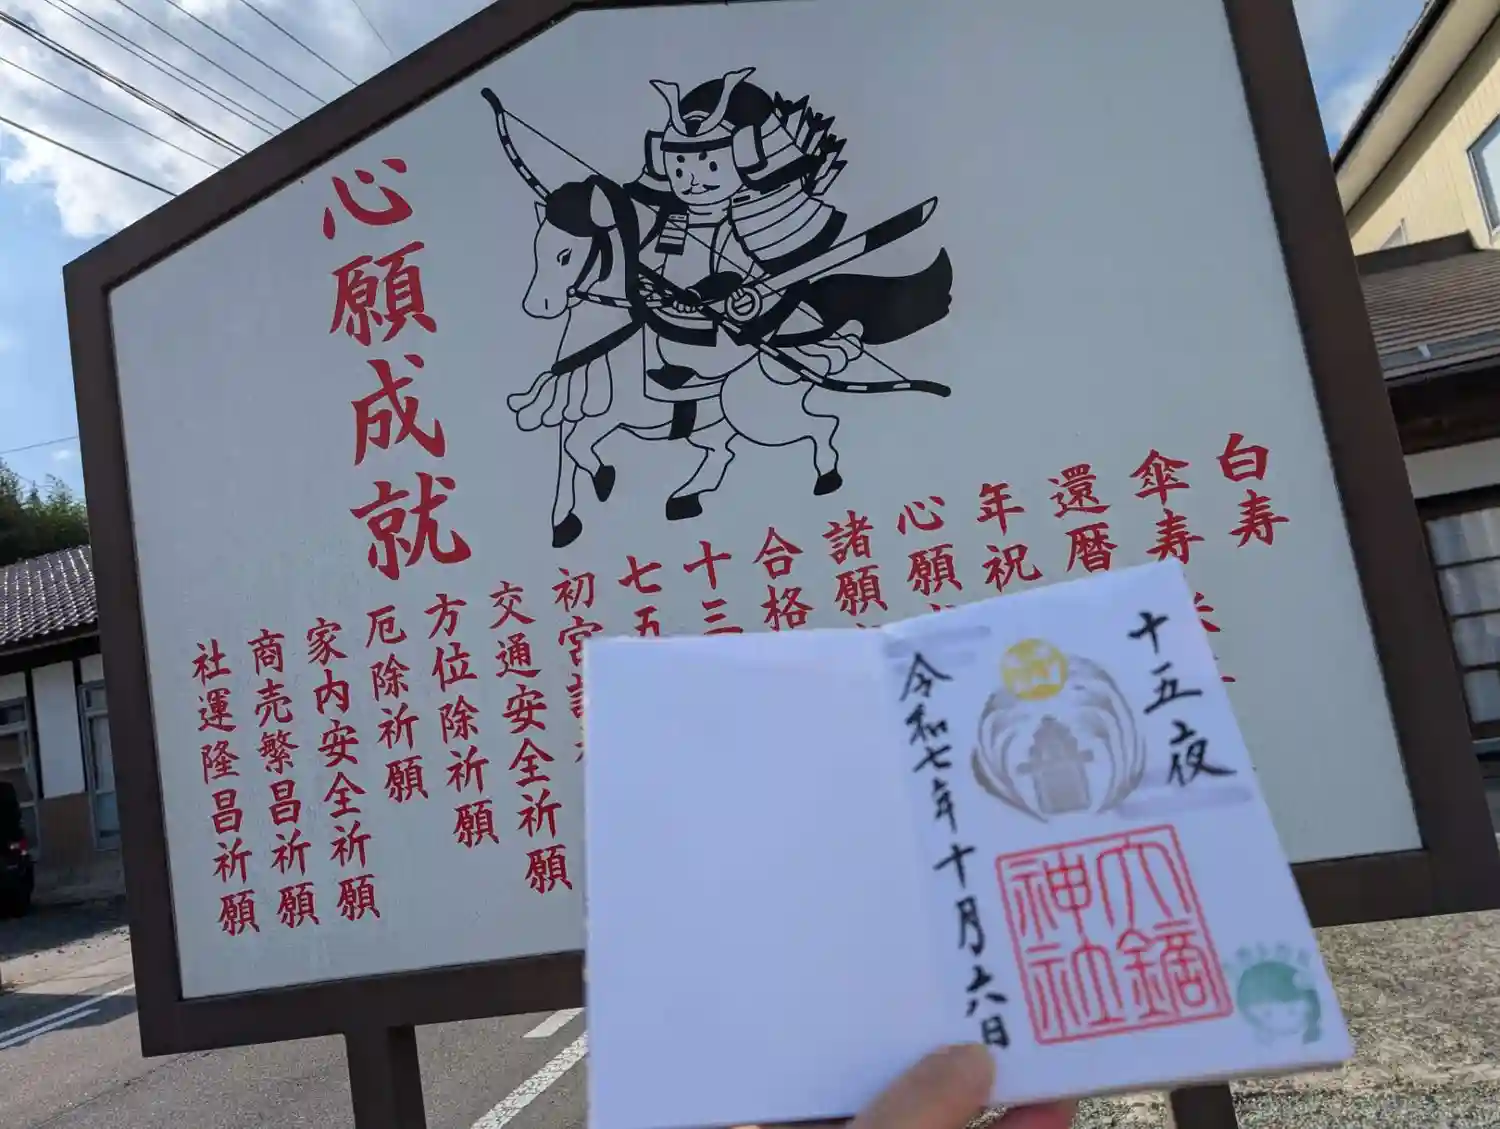 心願成就
白寿
傘寿
還暦
年祝
心願
諸願
合格
十三
七五
初宮
交通安全祈願
方位除祈願
厄除祈願
家内安全祈願
商売繁昌祈願
社運隆昌祈願
十五夜
令和七年十月六日
六鏑
神社